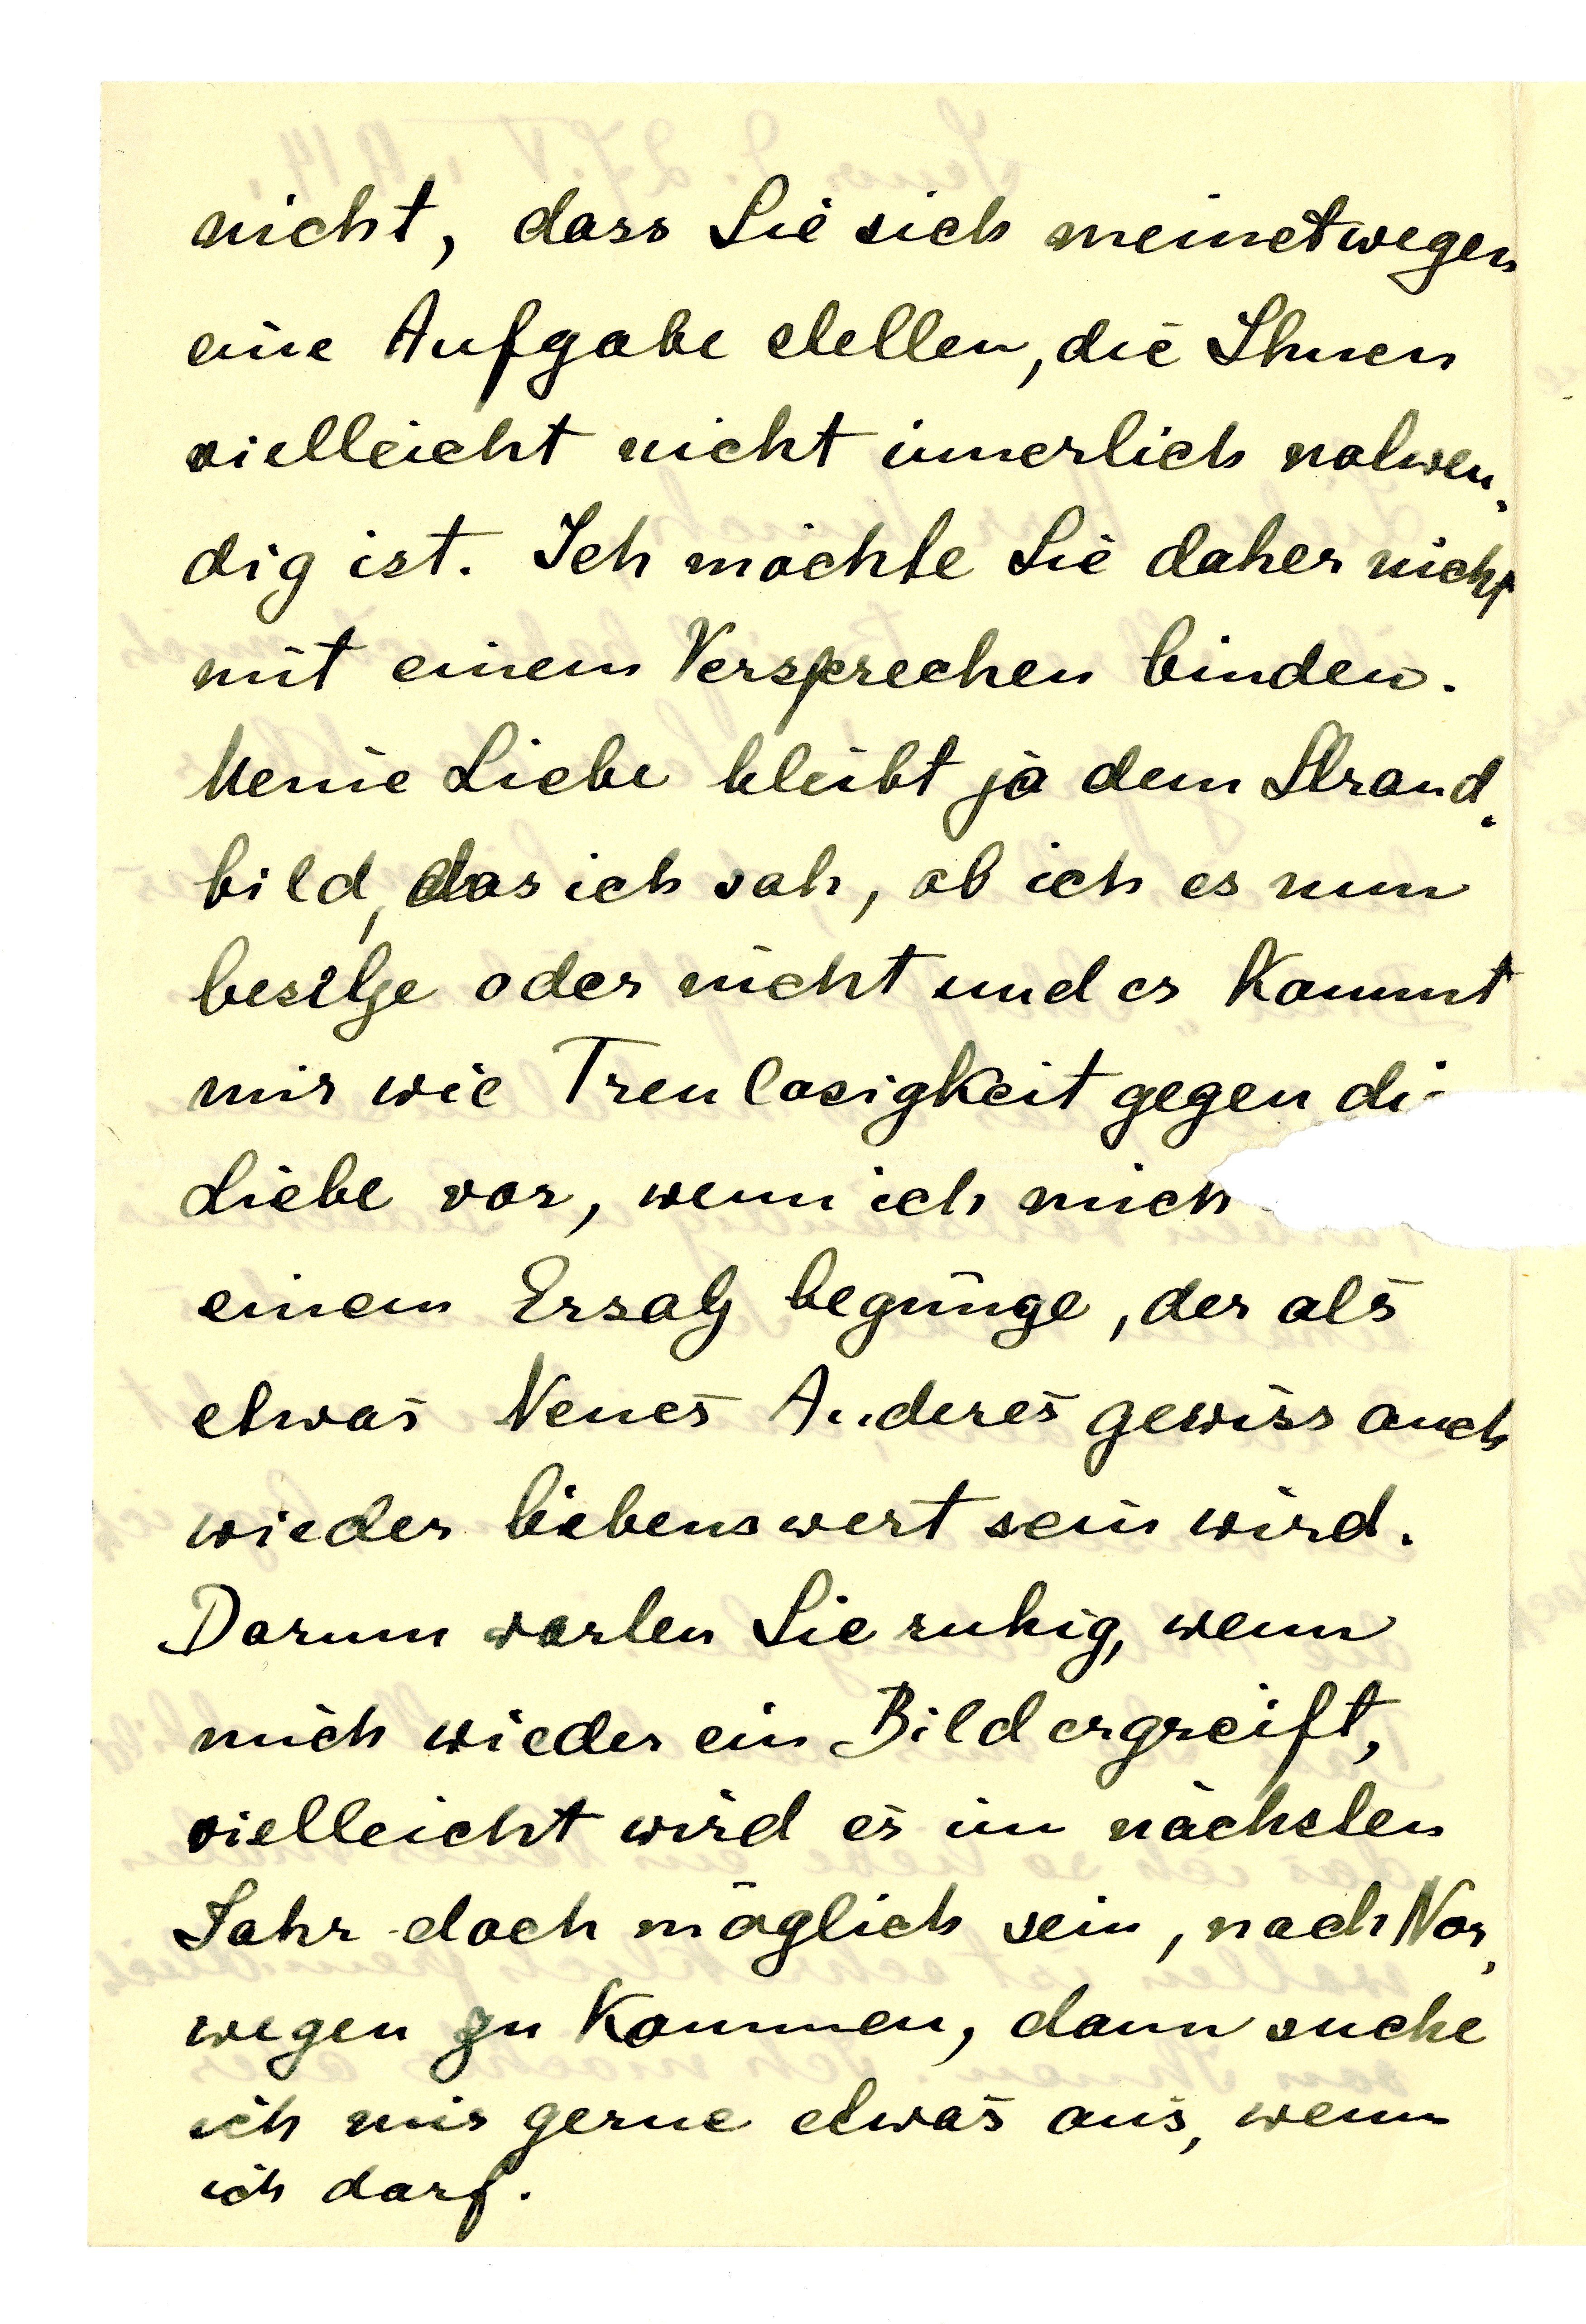 nicht, dass Sie sich meinetwegen
eine Aufgabe stellen, die Ihnen
vielleicht nicht innerlich notwen-
dig ist. Ich möchte Sie daher nicht
mit einem Versprechen binden.
Meine Liebe bleibt ja dem Strand-
bild, das ich sah, ob ich es nun
besitze oder nicht und es kommt
mir wie Treulosigkeit gegen di
Liebe vor, wenn ich mich
einem Ersatz begnüge, der als
etwas Neues Anderes gewiss auch
wieder liebenswert sein wird.
Darum warten Sie ruhig, wenn
mich wieder ein Bild ergreift,
vielleicht wird es im nächsten
Jahr doch möglich sein, nach Nor-
wegen zu kommen, dann suche
ich mir gerne etwas aus, wenn
ich darf.